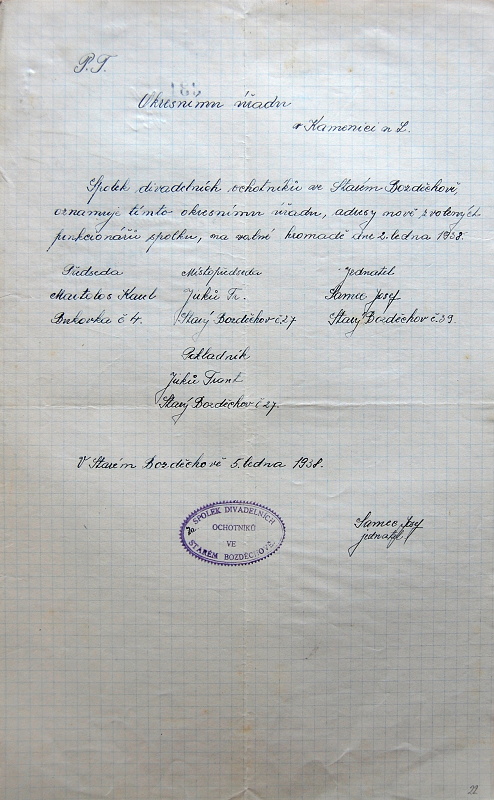 P.T.
Okresnímu úřadu
v Kamenici n L.
Spolek divadelních ochotníků ve Starém Bozděchově,
oznamuje tímto okresnímu úřadu, adresy nově zvolených
funkcionářů spolku, na valné hromadě dne 2. ledna 1938.
Předseda Místopředseda Jednatel
Karel Juků Fr. Samec Josef
Bukovka č 4. Starý Bozděchov č 27 Starý Bozděchov č. 39.
Pokladník
Juků Frant
Starý Bozděchov č 27.
V Starém Bozděchově 5. ledna 1938.
Za
SPOLEK DIVADELNÍCH
OCHOTNÍKŮ
VE
STARÉM BOZDĚCHOVĚ.
Samec Josef
jednatel
22.